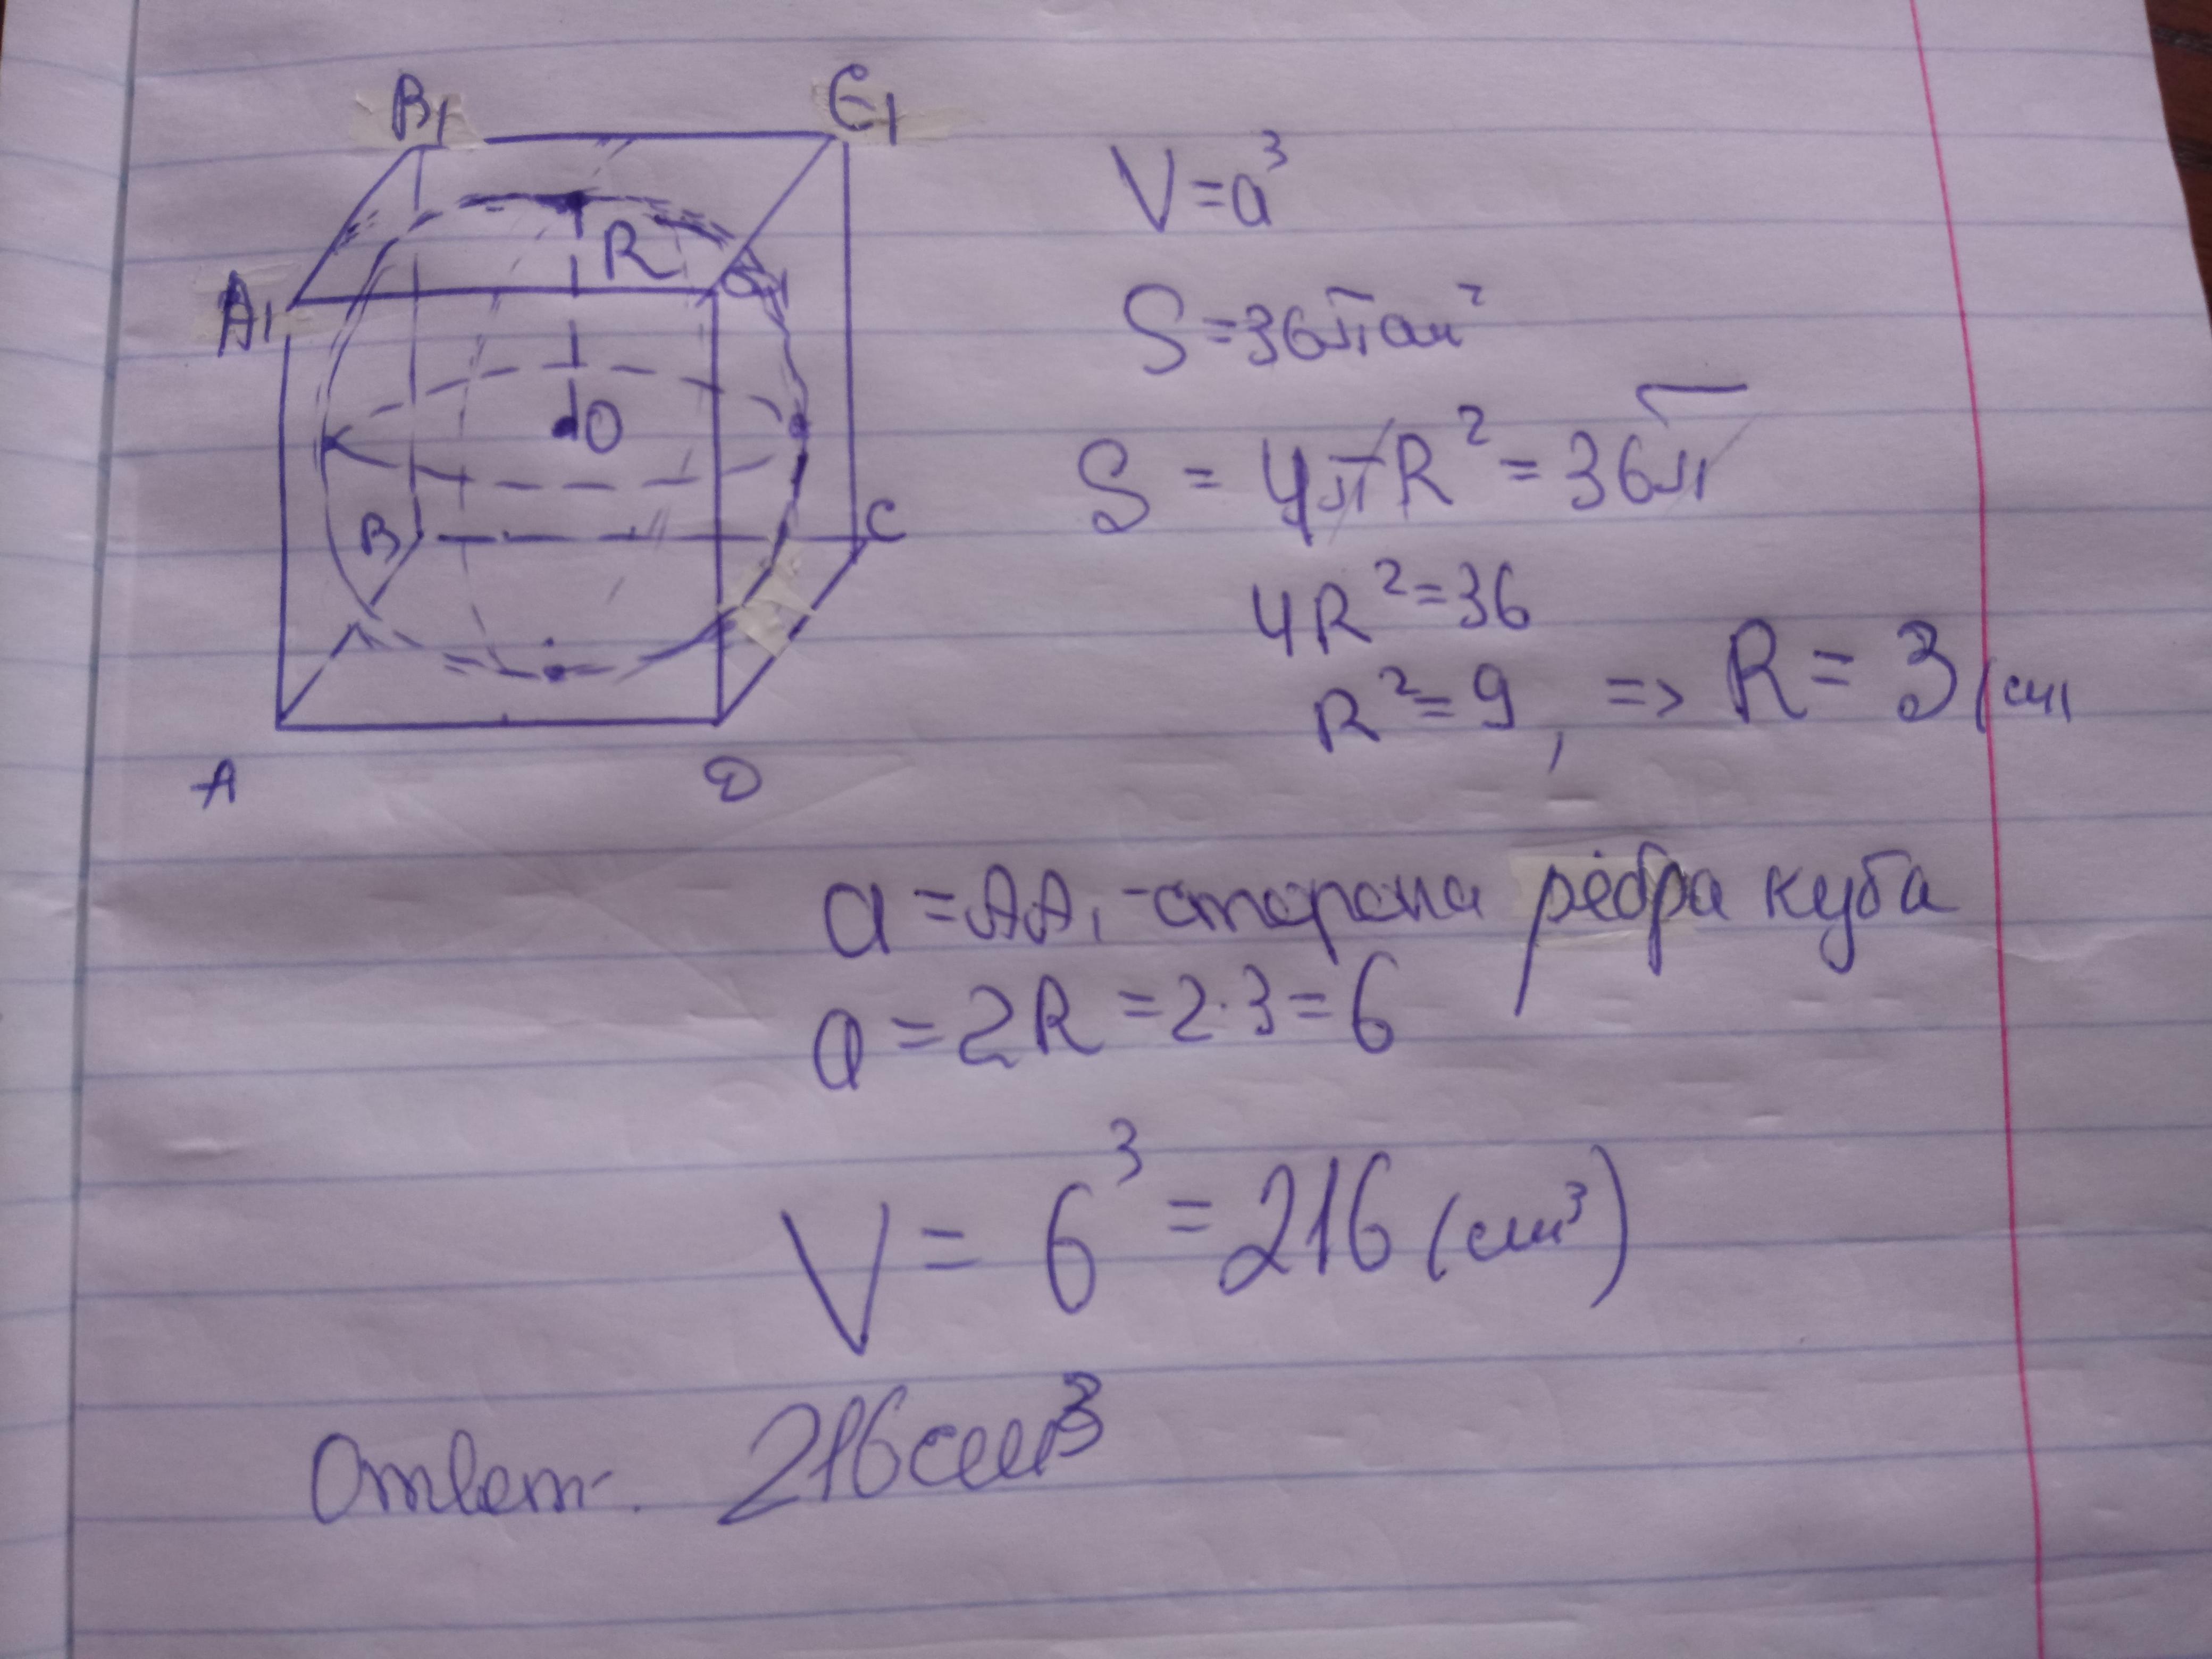 B₁ C₁
A₁ R
O
B C
A D
V=a³
S=36π см²
S = 4πR² = 36π
4R²=36
R²=9, => R=3 (см)
a=AA₁ -сторона ребра куба
a=2R=2·3=6
V= 6³=216 (см³)
Ответ. 216см³